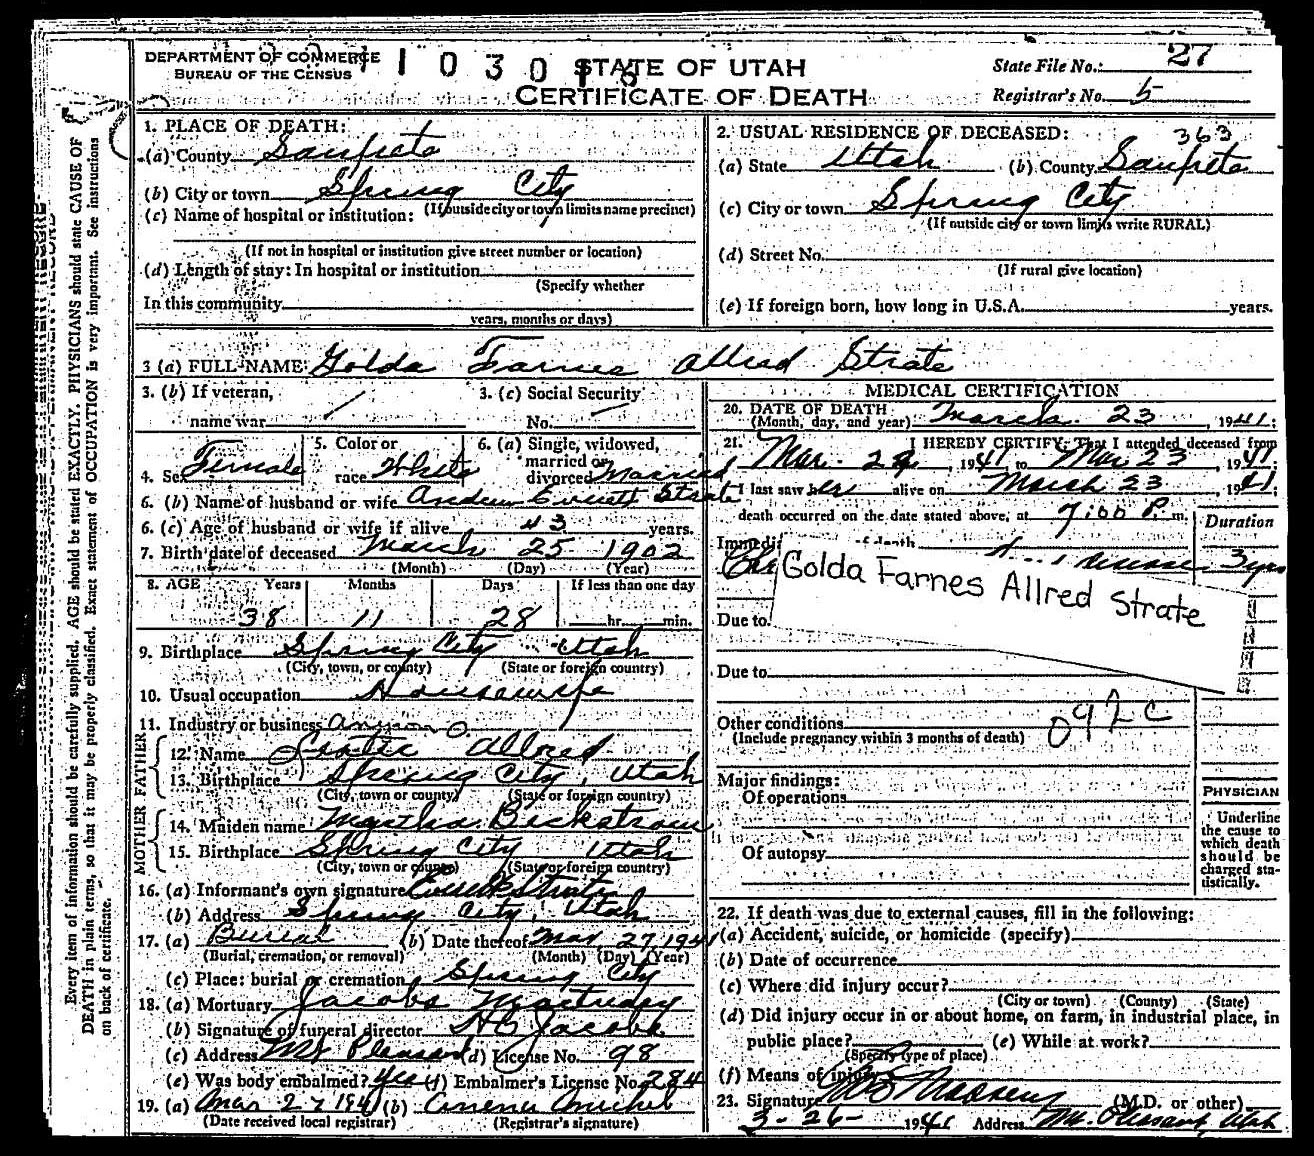 DEPARTMENT OF COMMERCE
BUREAU OF THE CENSUS
1 1 0 3 0
STATE OF UTAH
CERTIFICATE OF DEATH
State File No. 27
Registrar's No. 5
1. PLACE OF DEATH:
(a) County Sanpete
(b) City or town Spring City
(If outside city or town limits name precinct)
(c) Name of hospital or institution:
(If not in hospital or institution give street number or location)
(d) Length of stay: In hospital or institution
(Specify whether
In this community
years, months or days)
2. USUAL RESIDENCE OF DECEASED: 363
(a) State Utah (b) County Sanpete
(c) City or town Spring City
(If outside city or town limits write RURAL)
(d) Street No.
(If rural give location)
(e) If foreign born, how long in U.S.A. years.
3 (a) FULL NAME: Golda Farnes Allred Strate
3. (b) If veteran,
name war
3. (c) Social Security
No.
4. Sex Female
5. Color or
race White
6. (a) Single, widowed,
married or
divorced Married
6. (b) Name of husband or wife Andrew Everett Strate
6. (c) Age of husband or wife if alive 43 years.
7. Birth date of deceased March 25 1902
(Month) (Day) (Year)
8. AGE Years Months Days If less than one day
38 11 28 hr. min.
9. Birthplace Spring City Utah
(City, town, or county) (State or foreign country)
10. Usual occupation Housewife
11. Industry or business
FATHER
12. Name Allred
13. Birthplace Spring City, Utah
(City, town or county) (State or foreign country)
MOTHER
14. Maiden name Beckstrom
15. Birthplace Spring City Utah
(City, town or county) (State or foreign country)
16. (a) Informant's own signature Strate
(b) Address Spring City, Utah
17. (a) Burial (b) Date thereof Mar. 27 1941
(Burial, cremation, or removal) (Month) (Day) (Year)
(c) Place: burial or cremation Spring City
18. (a) Mortuary Jacobs Mortuary
(b) Signature of funeral director Jacobs
(c) Address Mt Pleasant (d) License No. 98
(e) Was body embalmed? Yes (f) Embalmer's License No. 284
19. (a) Mar 27 1941 (b)
(Date received local registrar) (Registrar's signature)
MEDICAL CERTIFICATION
20. DATE OF DEATH
(Month, day, and year) March 23, 1941;
21. I HEREBY CERTIFY, That I attended deceased from
Mar. , 1941 to Mar 23, 1941
I last saw her alive on March 23, 1941;
death occurred on the date stated above, at 7:00 P. m.
Duration
3 yrs
Golda Farnes Allred Strate
Due to
Due to
Other conditions
(Include pregnancy within 3 months of death)
092c
Major findings:
Of operations
Of autopsy
PHYSICIAN
Underline
the cause to
which death
should be
charged sta-
tistically.
22. If death was due to external causes, fill in the following:
(a) Accident, suicide, or homicide (specify)
(b) Date of occurrence
(c) Where did injury occur?
(City or town) (County) (State)
(d) Did injury occur in or about home, on farm, in industrial place, in
public place? (e) While at work?
(Specify type of place)
(f) Means of injury
23. Signature (M.D. or other)
3-26- 1941 Address Mt. Pleasant, Utah
Every item of information should be carefully supplied. AGE should be stated EXACTLY. PHYSICIANS should state CAUSE OF
DEATH in plain terms, so that it may be properly classified. Exact statement of OCCUPATION is very important. See instructions
on back of certificate.